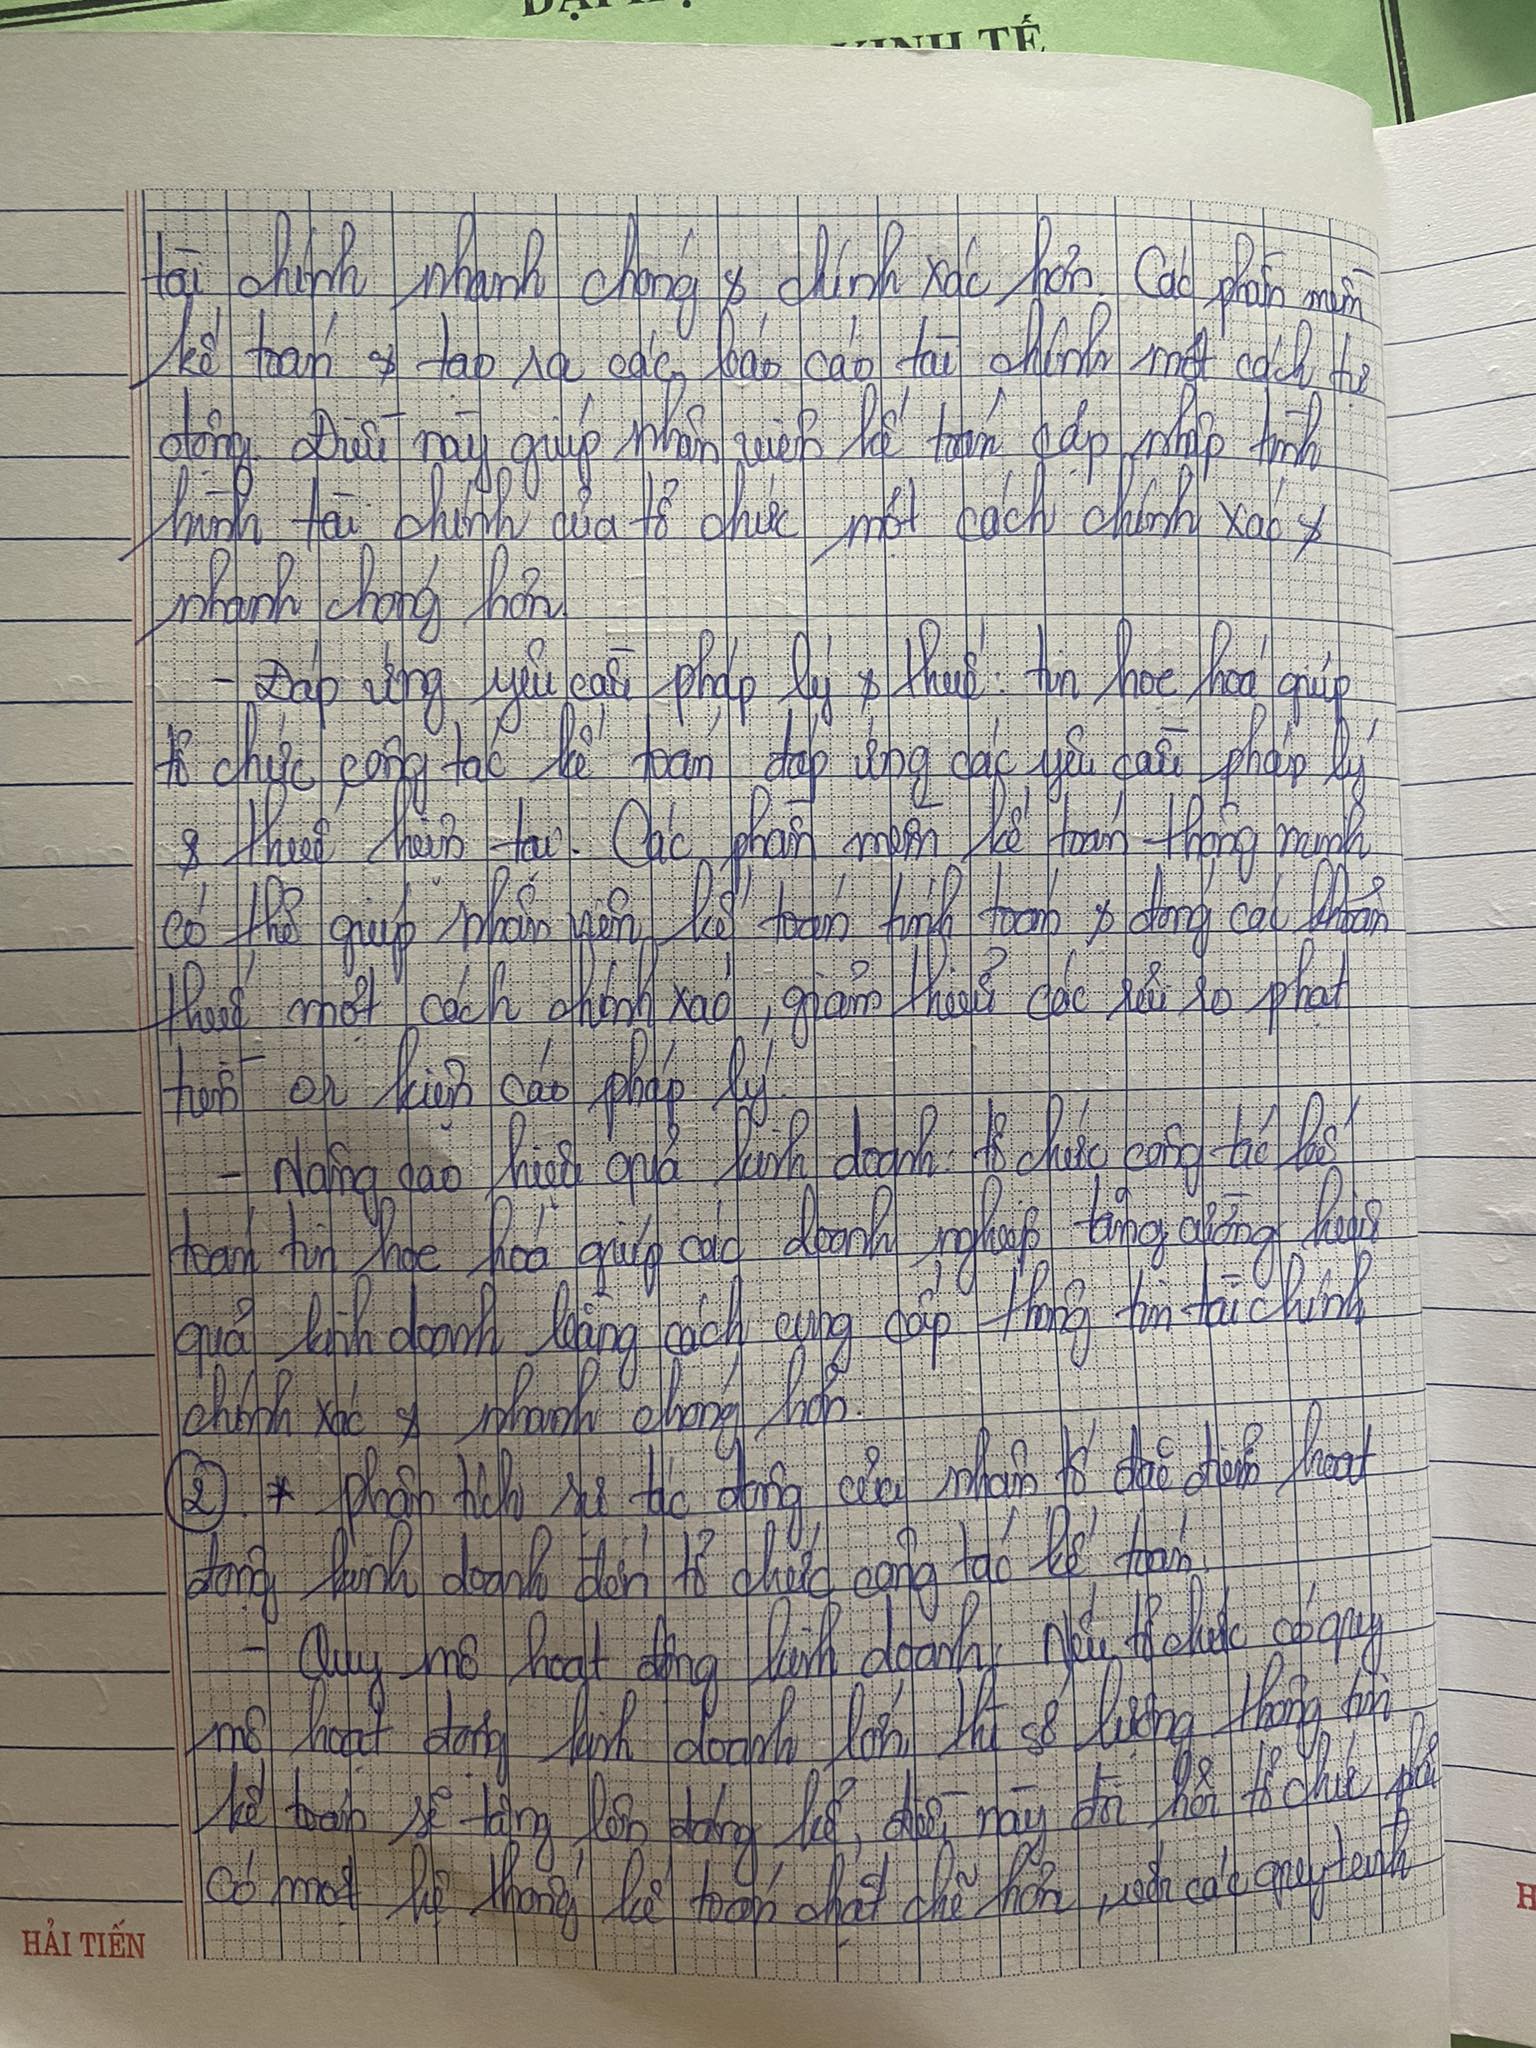 KINH TẾ
tài chính nhanh chóng & chính xác hơn. Các phần mềm
kế toán & tạo ra các báo cáo tài chính một cách tự
động. Điều này giúp nhân viên kế toán cập nhập tình
hình tài chính của tổ chức một cách chính xác &
nhanh chóng hơn.
- Đáp ứng yêu cầu pháp lý & thuế: tin học hoá giúp
tổ chức công tác kế toán đáp ứng các yêu cầu pháp lý
& thuế hiện tại. Các phần mềm kế toán thông minh
có thể giúp nhân viên kế toán tính toán & đóng các khoản
thuế một cách chính xác, giảm thiểu các rủi ro phạt
tiền or kiện cáo pháp lý.
- Nâng cao hiệu quả kinh doanh: tổ chức công tác kế
toán tin học hoá giúp các doanh nghiệp tăng cường hiệu
quả kinh doanh bằng cách cung cấp thông tin tài chính
chính xác & nhanh chóng hơn.
② * phân tích sự tác động của nhân tố đặc điểm hoạt
động kinh doanh đến tổ chức công tác kế toán.
- Quy mô hoạt động kinh doanh: Nếu tổ chức có quy
mô hoạt động kinh doanh lớn, thì số lượng thông tin
kế toán sẽ tăng lên đáng kể, điều này đòi hỏi tổ chức phải
có một hệ thống kế toán chặt chẽ hơn, với các quy trình
HẢI TIẾN